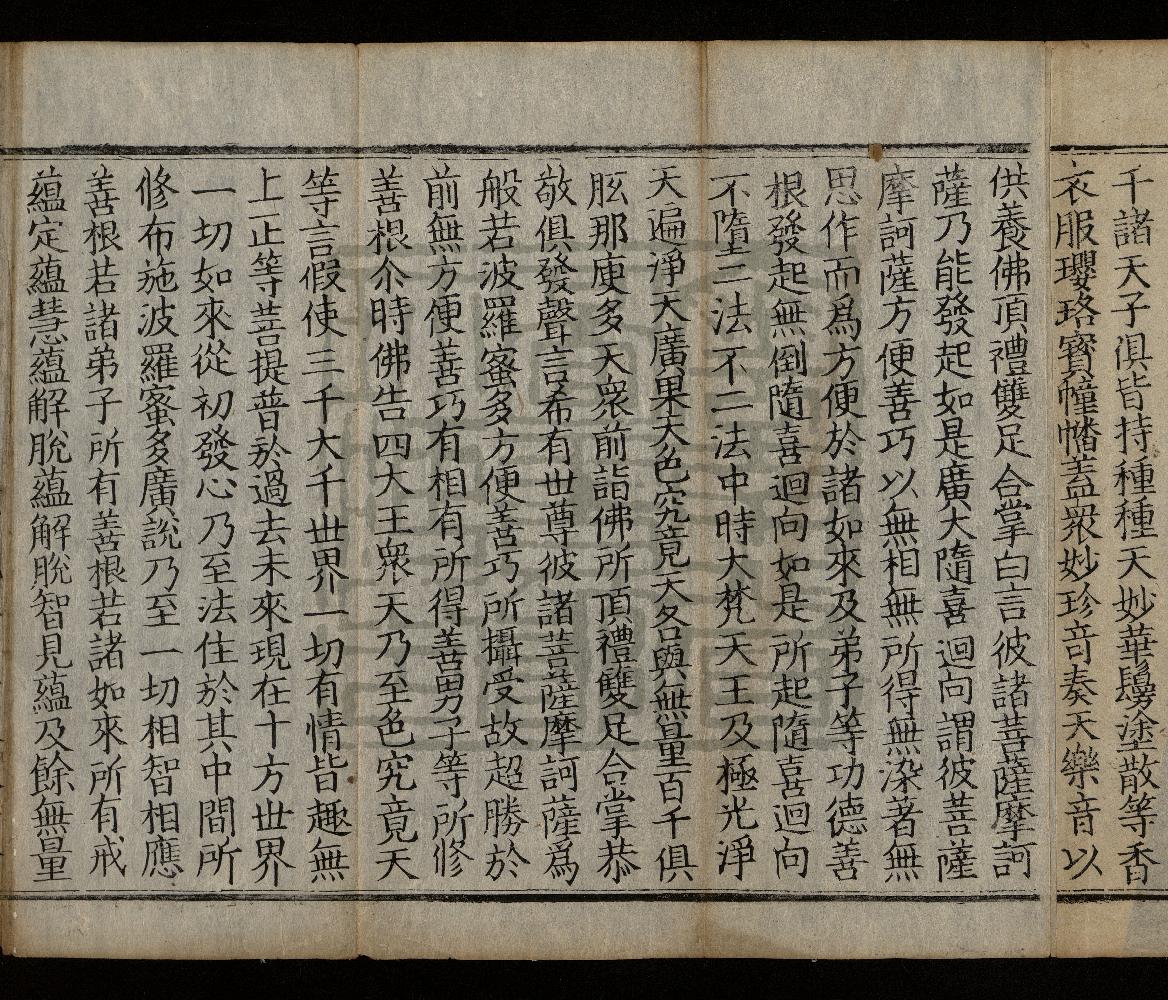 千諸天子俱皆持種種天妙華鬘塗散等香
衣服瓔珞寶幢幡蓋衆妙珍竒奏天樂音以
供養佛頂禮雙足合掌白言彼諸菩薩摩訶
薩乃能發起如是廣大隨喜迴向謂彼菩薩
摩訶薩方便善巧以無相無所得無染著無
思作而爲方便於諸如來及弟子等功德善
根發起無倒隨喜迴向如是所起隨喜迴向
不墮二法不二法中時大梵天王及極光淨
天遍淨天廣果天色究竟天各與無量百千俱
胝那庾多天衆前詣佛所頂禮雙足合掌恭
敬俱發聲言希有世尊彼諸菩薩摩訶薩爲
般若波羅蜜多方便善巧所攝受故超勝於
前無方便善巧有相有所得善男子等所修
善根尒時佛告四大王衆天乃至色究竟天
等言假使三千大千世界一切有情皆趣無
上正等菩提普於過去未來現在十方世界
一切如來從初發心乃至法住於其中間所
修布施波羅蜜多廣說乃至一切相智相應
善根若諸弟子所有善根若諸如來所有戒
蘊定蘊慧蘊解脫蘊解脫智見蘊及餘無量